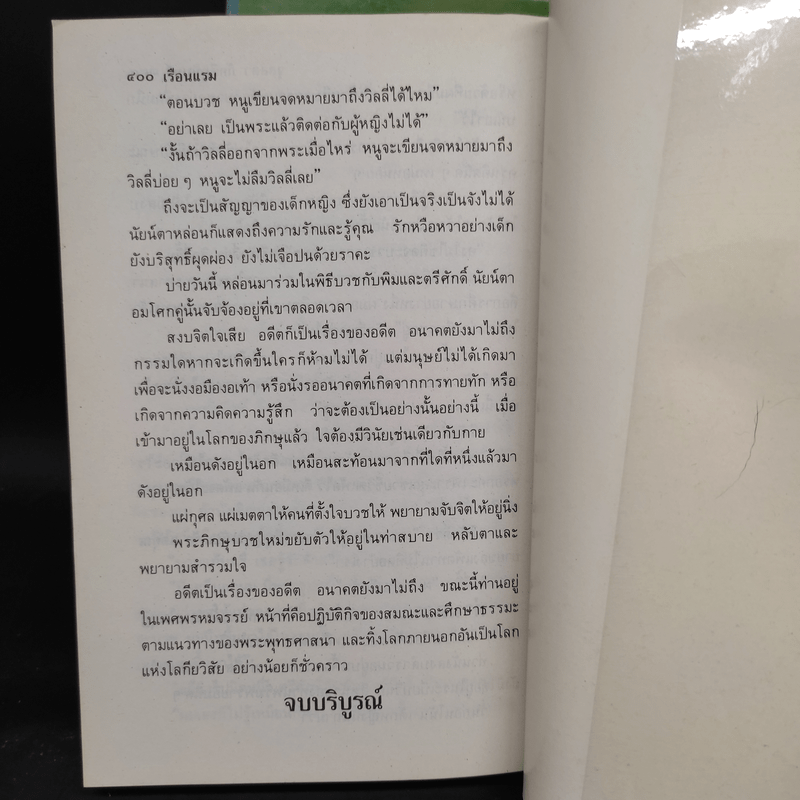 ๔๐๐ เรือนแรม
“ตอนบวช หนูเขียนจดหมายมาถึงวิลลี่ได้ไหม”
“อย่าเลย เป็นพระแล้วติดต่อกับผู้หญิงไม่ได้”
“งั้นถ้าวิลลี่ออกจากพระเมื่อไหร่ หนูจะเขียนจดหมายมาถึง
วิลลี่บ่อย ๆ หนูจะไม่ลืมวิลลี่เลย”
ถึงจะเป็นสัญญาของเด็กหญิง ซึ่งยังเอาเป็นจริงเป็นจังไม่ได้
นัยน์ตาหล่อนก็แสดงถึงความรักและรู้คุณ รักหวือหวาอย่างเด็ก
ยังบริสุทธิ์ผุดผ่อง ยังไม่เจือปนด้วยราคะ
บ่ายวันนี้ หล่อนมาร่วมในพิธีบวชกับพิมและตรีศักดิ์ นัยน์ตา
อมโศกคู่นั้นจับจ้องอยู่ที่เขาตลอดเวลา
สงบจิตใจเสีย อดีตก็เป็นเรื่องของอดีต อนาคตยังมาไม่ถึง
กรรมใดหากจะเกิดขึ้นใครก็ห้ามไม่ได้ แต่มนุษย์ไม่ได้เกิดมา
เพื่อจะนั่งงอมืองอเท้า หรือนั่งรออนาคตที่เกิดจากการทายทัก หรือ
เกิดจากความคิดความรู้สึก ว่าจะต้องเป็นอย่างนั้นอย่างนี้ เมื่อ
เข้ามาอยู่ในโลกของภิกษุแล้ว ใจต้องมีวินัยเช่นเดียวกับกาย
เหมือนดังอยู่ในอก เหมือนสะท้อนมาจากที่ใดที่หนึ่งแล้วมา
ดังอยู่ในอก
แผ่กุศล แผ่เมตตาให้คนที่ตั้งใจบวชให้ พยายามจับจิตให้อยู่นิ่ง
พระภิกษุบวชใหม่ขยับตัวให้อยู่ในท่าสบาย หลับตาและ
พยายามสำรวมใจ
อดีตเป็นเรื่องของอดีต อนาคตยังมาไม่ถึง ขณะนี้ท่านอยู่
ในเพศพรหมจรรย์ หน้าที่คือปฏิบัติกิจของสมณะและศึกษาธรรมะ
ตามแนวทางของพระพุทธศาสนา และทิ้งโลกภายนอกอันเป็นโลก
แห่งโลกียวิสัย อย่างน้อยก็ชั่วคราว
จบบริบูรณ์